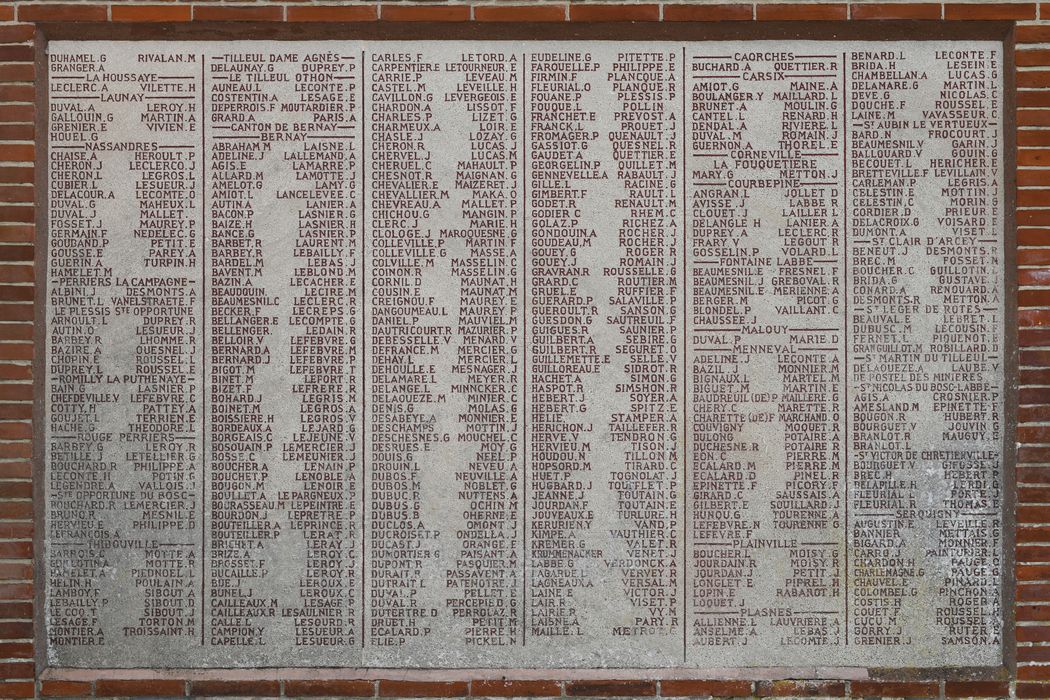 DUHAMEL.G RIVALAN.M
GRANGER.A
LA HOUSSAYE
LECLERC.A VILETTE.H
LAUNAY
DUVAL.A LEROY.H
GALLOUIN.G MARTIN.A
GRENIER.E VIVIEN.E
HOUEL.G
NASSANDRES
CHAISE.A HEROULT.P
CHERON.J LECLERCQ.J
CHERON.L LEGROS.L
CUBIER.L LESUEUR.J
DELACOUR.A LECOMTE.O
DUVAL.G MAHEUX.L
DUVAL.J MALLET.L
FOSSET.J MAUREY.P
GERMAIN.F NEDELEC.G
GOUDAND.P PETIT.E
GOUSSE.E PAREY.A
GUERIN.A TURPIN.H
HAMELET.M
PERRIERS LA CAMPAGNE
ALBIN.J DESMONTS.A
BRUNET.L VANELSTRAETE.F
LE PLESSIS STE OPPORTUNE
ARNOULT.L DUPREY.R
AUTIN.O LESUEUR.A
BARBEY.R LHOMME.R
BAZIRE.A QUESNEL.J
CHOPIN.E ROUSSEL.L
DUPREY.L ROUSSEL.E
ROMILLY LA PUTHENAYE
BAIN.G LASNIER.P
CHEFDEVILLE.V LEFEBVRE.C
COTTY.H PATTEY.A
GOUJET.L TERRIEN.E
HACHE.G THEODORE.L
ROUGE PERRIERS
BARBEY.G LEROY.R
BETILLE.J LETELLIER.G
BOUCHARD.R PHILIPPE.A
LECOMTE.H POTIN.G
LEGENDRE.A VALLOIS.J
STE OPPORTUNE DU BOSC
BOUCHARD.R LEMERCIER.J
BRUNO.R MESNIL.E
HERVIEU.E PHILIPPE.D
LEFRANCOIS.A
THIBOUVILLE
BARROIS.G MOTTE.A
GUILLOTIN.A MOTTE.R
HAMELET.A PIEDNOEL.L
HELIN.H POULAIN.A
LAMBOY.F SIBOUT.A
LEBAILLY.P SIBOUT.D
LE COQ.T SIBOUT.J
LESAGE.F TORTON.M
MONTIER.A TROISSAINT.H
MONTIER.E
TILLEUL DAME AGNÈS
DELAUNAY.G DUPREY.P
LE TILLEUL OTHON
AUNEAU.L LECOMTE.P
COSTENTIN.A LESAGE.E
DEPERROIS.F MOUTARDIER.P
GIRARD.A PARIS.A
CANTON DE BERNAY
BERNAY
ABRAHAM.M LAISNE.L
ADELINE.J LALLEMAND.A
AGIS.E LAMARRE.P
ALLARD.M LAMOTTE.J
AMELOT.G LAMY.G
AMIOT.L LANCELEVEE.C
AUTIN.A LANIER.A
BACON.P LASNIER.G
BAIZE.H LASNIER.H
BANCE.G LASNIER.P
BARBET.R LAURENT.M
BARBEY.R LEBAILLY.F
BARDEL.M LEBAS.J
BAVENT.M LEBLOND.M
BAZIN.A LECACHER.E
BEAUDOUIN. LECIRE.M
BEAUMESNIL.C LECLERC.R
BECKER.F LECREPS.G
BELLANGER.E LECOMTE.G
BELLENGER.F LEDAIN.R
BELLOIR.V LEFEBVRE.G
BERNARD.A LEFEBVRE.M
BERNARD.J LEFEBVRE.P
BIGOT.M LEFEBVRE.T
BINET.M LEFORT.R
BIZET.F LEFRERE.R
BOHARD.J LEGRIS.M
BOINET.M LEGROS.A
BOISSIERE.H LEGROS.V
BORDEAUX.A LEJARD.G
BORGEAIS.C LEJEUNE.V
BOSQUAIN.P LEMERCIER.J
BOSSE.C LEMEUNIER.J
BOUCHER.A LENAIN.P
BOUCHET.P LENOBLE.A
BOUGON.M LENOIR.E
BOULLET.A LE PARGNEUX.P
BOURASSEAU.M LEPEINTRE.E
BOURDON.J LEPRETRE.P
BOUTEILLER.A LEPRINCE.R
BOUTEILLER.P LERAT.F
BRICHET.A LERAY.J
BRIZE.A LEROY.C
BROSSET.F LEROY.J
BUCAILLE.P LEROY.R
BUE.J LEROUX.E
BUNEL.J LEROUX.C
CAILLEAUX.M LESAGE.P
CAILLEAUX.R LESAULNIER.R
CALLE.L LESOURD.R
CAMPION.Y LESUEUR.A
CAPELLE.L LESUEUR.G
CARLES.F LETORD.A
CARPENTIER.E LETOURNEUR.E
CARRIE.P LEVEAU.M
CASTEL.M LEVEILLE.H
CAVILLON.G LEVERGEOIS.E
CHARDON.A LISSOT.F
CHARLES.P LIZET.G
CHARMEUX.A LOIR.E
CHASLE.J LOZAY.G
CHERON.R LUCAS.J
CHERVEL.J LUCAS.M
CHERUEL.C MAHAULT.P
CHESNOT.R MAIGNAN.G
CHEVALIER.E MAIZERET.J
CHEVALLIER.M MAKA.O
CHEVREAU.A MALLET.P
CHICHOU.G MANGIN.P
CLERC.J MARIE.H
COLOGE.J MAROQUESNE.G
COLLEVILLE.P MARTIN.F
COLLEVILLE.G MASSE.A
COLVILLE.M MASSELIN.C
COINON.R MASSELIN.G
CORNIL.D MAUNAT.H
COUSIN.E MAUNAT.M
CREIGNOU.F MAUREY.E
DANGOUMEAU.L MAUREY.P
DANIEL.P MAUVIEL.M
DAUTRICOURT.R MAZURIER.P
DEBESSELLE.V MENARD.V
DEFRANCE.M MERCIER.G
DEHAY.L MERCIER.L
DEHOULLE.E MESNAGER.J
DELAMARE.L MEYER.R
DELANGE.L MINNCKER.C
DELAQUEZE.M MINIER.C
DENIS.G MOLAS.G
DESABEYE.A MONNIER.E
DESCHAMPS MOTTIN.J
DESCHESNES.G MOUCHEL.C
DESRUES.E MOY.G
DOUIS.G NEEL.P
DROUIN.L NEVEU.A
DUBOS.F NEUVILLE.A
DUBOS.M NOBLET.G
DUBUC.R NUTTENS.A
DUBUS.G OCHIN.H
DUBUS.R OHERNE.E
DUCLOS.A OMONT.J
DUCROISET.P ONDELLA.J
DUCASTA.J ORANGE.F
DUMORTIER.G PAISANT.A
DUPONT.R PASQUIER.M
DURAIT.R PASSAVENT.A
DUTRAIT.L PATENOTRE.L
DUVAL.P PELLET.E
DUVAL.R PERCEPIED.G
DUTERTRE.D PERROLAZ.R
DRUET.H PETIT.M
ECALARD.P PIERRE.H
ELIE.P PICKEL.N
EUDELINE.G PITETTE.P
FAROUELLE.P PHILIPPE.E
FIRMIN.F PLANCQUE.A
FLEURIAL.O PLANQUE.R
FOUANE.P PLESSIS.P
FOUQUE.L POLLIN.J
FRANCHET.E PREVOST.A
FRANCK.L PROUET.J
FROMAGER.P QUENAULT.J
GASSIOT.G QUESNEL.R
GAUDET.A QUETTIER.E
GEORGELIN.P QUILLET.M
GENNEVELLE.A RABAULT.J
GILLE.L RACINE.G
GIMBERT.F RAULT.L
GODET.R RENAULT.M
GODIER.C RHEM.C
GOLAZ.P RICHEZ.A
GONDOUIN.A ROCHER.A
GOUDEAU.M ROCHER.J
GOUEY.G ROGER.R
GOUEY.J ROMAIN.J
GRAVRAN.R ROUSSELLE.G
GRIARD.C RUELLE.F
GROULT.E RUFFIER.F
GUERARD.P SALAVILLE.P
GUEROULT.R SANSON.G
GUESDON.G SAUTREUIL.F
GUIGUES.R SAUNIER.P
GUILBERT.A SCIBRE.G
GUILBERT.R SEGURET.O
GUILLEMETTE.E SELLE.V
GUILLOREAU.E SIDROT.R
HACHET.A SIMON.G
HASPOT.R SIMSHON.R
HEBERT.J SOYER.A
HEBERT.G SPITZ.E
HELIE STAMPER.A
HERICHON.J TAILLEFER.R
HERVE.J TENDRON.G
HERVIEU.M TISON.J
HOUDOU.M TILLON.M
HOPSORD.M TIRARD.C
HUET.P TOGNOLAT.J
HUGBARD.J TOUTLET.P
JEANNE.J TOUTAIN.G
JOURDAN.F TOUTAIN.E
JOUVEAUX.E TURLURE.H
KERURIEN.Y VAND.P
KIMPE.A VAUTHIER.C
KREMER.G VALET.R
KRUMMENACKER VENET.J
LABBE.G VERDONCK.A
LAGARDE.L VERVER.H
LAGNEAUX.A VERSAL.M
LAINE.E VICTOR.J
LAIR.R VISET.P
LAIR.R VY.M
LAISNE.A PARY.R
MAILLE.L METROT.C
CAORCHES
BUCHARD.A QUETTIER.R
CARSIX
AMIOT.G MAINE.A
BOULANGER.Y MAILLARD.L
BRUNET.A MOULIN.G
CANTEL.L RENARD.H
DENDAL.A RIVIERE.L
DUVAL.M ROMAIN.J
GUERNON.A THOREL.E
CORNEVILLE
LA FOUQUETIERE
MARY.G METTON.J
COURBEPINE
ANGRAN.L JOLLET.D
AVISSE.J LABBE.R
CLOUET.J LAILLER.L
DELANGLE.H LANIER.A
DUPREY.A LECLERC.R
FRARY.V LEGOUT.R
GOSSELIN.P VOLARD.L
FONTAINE LABBE
BEAUMESNIL.E FRESNEL.F
BEAUMESNIL.J GREBOVAL.R
BEAUMESNIL.E MERIENNE.A
BERGER.M PICOT.G
BLONDEL.P VAILLANT.C
CHAUSSEE.J
MALOUY
DUVAL.P MARIE.D
MENNEVAL
ADELINE.J LECOMTE.A
BAZIL.J MONNIER.M
BIGNAUX.L MARTEL.M
BIGUE.M MARTIN.E
BAUDREUIL (DE)P MAILLERE.G
CHERY.C MARETTE.R
CHARETTE (DE)P MARCHAND.O
COUVIGNY MOQUET.R
DULONG POTAIRE.A
DUCHESNE.R POTAIRE.R
EON.C PIERRE.M
ECALARD.M PIERRE.M
ECALARD.D PINEL.R
EPINETTE.F PICORY.F
GIRARD.C SAUSSAIS.A
GILBERT.E SOUILLARD.J
HUNOU.G TOURENNE.A
LEFEBVRE.N TOURENNE.G
LEFEVRE.F
PLAINVILLE
BOUCHER.L MOISY.G
JOURDAIN.R MOISY.R
JOURDAN.J PETIT.J
LONGLET.E PIPREL.H
LOPIN.E RABAROT.H
LOQUET.J
PLASNES
ALLIENNE.L LAUVRIERE.A
ANSELME.A LEBAS.J
AUBERT.J LECOMTE.J
BENARD.L LECONTE.F
BRIDA.H LESEIN.E
CHAMBELLAN.A LUCAS.G
DELAMARE.G MARTIN.L
DEVE.G NICOLAS.C
DOUCHE.F ROUSSEL.E
LAINE.M VAVASSEUR.C
ST AUBIN LE VERTUEUX
BARD.N FROCOURT.J
BEAUMESNIL.V GARIN.J
BALLOUARD.V GOUIN.G
BECQUET.L HERICHER.E
BRETTEVILLE.F LEVILLAIN.V
CARLEMAN.P LEGRIS.A
CELESTIN.E MOTTIN.J
CELESTIN.C MORIN.G
CORDIER.D PRIEUR.E
DELACROIX.G VOISARD.E
DUMONT.A VISET.L
ST CLAIR D'ARCEY
BENEUT.J DESMONTS.R
BREC.M FOSSET.N
BOUCHER.C GUILLOTIN.L
BRIDA.G GUSTAVE.J
CONARD.A RENOUARD.A
DESMONTS.R METTON.A
ST LEGER DE ROTES
BEAUVAL.E LEBRET.L
DUBUSC.M LECOUSIN.F
FERNET.L PIQUENOT.E
GRANGUILLOT.M ROBILLARD.D
ST MARTIN DU TILLEUL
DELAQUEZE.A LAUBE.V
DE POSTEL DES MINIERES
ST NICOLAS DU BOSC-LABBE
AGIS.A CROSNIER.P
AMESLAND.M EPINETTE.F
BOUGON.R HUBERT.R
BOURGUET.V JOUVIN.G
BRANLOT.R MAUGUY.E
BRANLOT.L
ST VICTOR DE CHRETIENVILLE
BOURGUET.V GIFOSSE.J
BREC.H HEBERT.P
DELAPILLE.H LERDI.G
FLEURIAL.L PORTE.J
FLEURIAL.R THOMAS.E
SERQUIGNY
AUGUSTIN.E LEVEILLE.R
BANNIER METTAIS.G
BIGARD.A MONNIER.F
CARRO.J PAINTURIER.L
CHARDON.H PAUGE.O
CHARLEMAGNE.G PAUGE.G
CHAUVEL.E PINARD.L
COLOMBEL.G PINCHON.A
COSTIS.H ROGER.A
COUET.F ROUSSEL.H
CUCU.M ROUSSEL.R
GORRY.J RUTER.E
GRENIER.J SAMSON.A